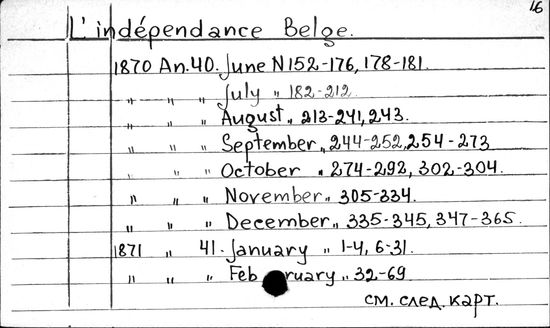 16
L'indépendance Belge.
1870 An. 40. June N 152-176, 178-181.
" " " July " 182-212
" " " August " 213-241, 243.
" " " September " 244-252, 254-273
" " " October " 274-292, 302-304.
" " " November " 305-334.
" " " December " 335-345, 347-365.
1871 " 41. January " 1-4, 6-31.
" " " February " 32-69
см. след. карт.